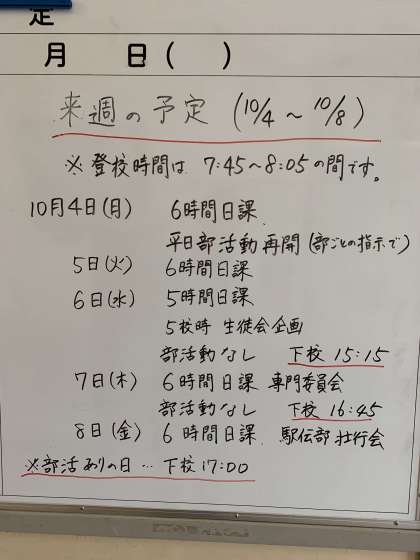 定
月 日( )
来週の予定 (10/4 ~ 10/8)
※ 登校時間は 7:45~8:05の間です。
10月4日(月) 6時間日課
平日部活動再開(部ごとの指示で)
5日(火) 6時間日課
6日(水) 5時間日課
5校時 生徒会企画
部活動なし 下校 15:15
7日(木) 6時間日課 専門委員会
部活動なし 下校 16:45
8日(金) 6時間日課 駅伝部壮行会
※部活ありの日…下校17:00